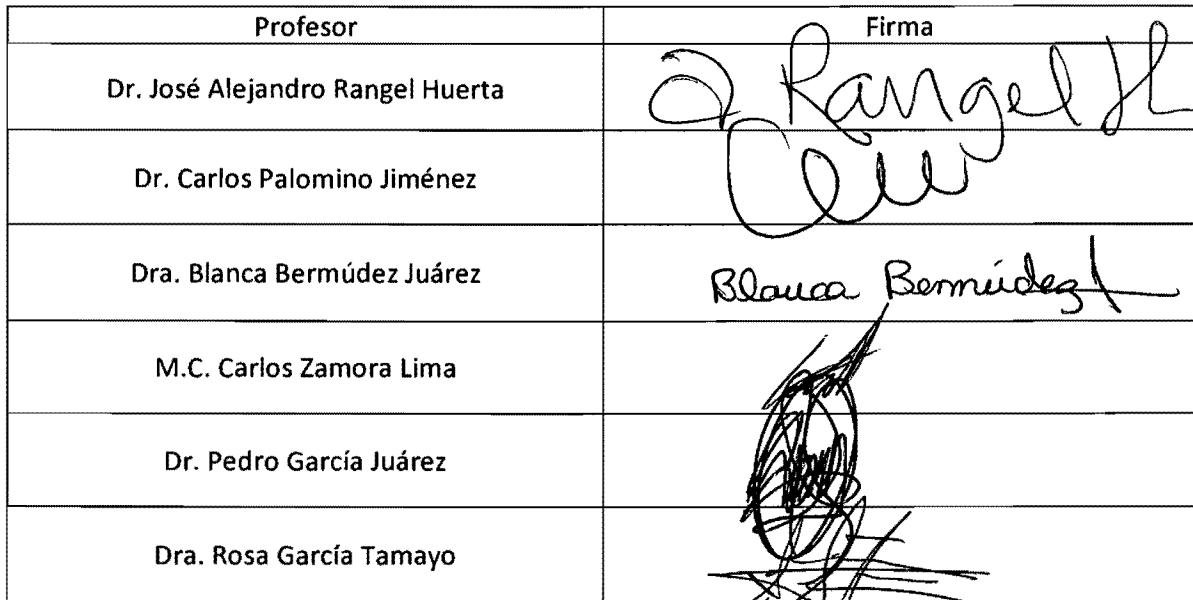 Profesor Firma
Dr. José Alejandro Rangel Huerta Rangel H
Dr. Carlos Palomino Jiménez
Dra. Blanca Bermúdez Juárez Blanca Bermúdez
M.C. Carlos Zamora Lima
Dr. Pedro García Juárez
Dra. Rosa García Tamayo